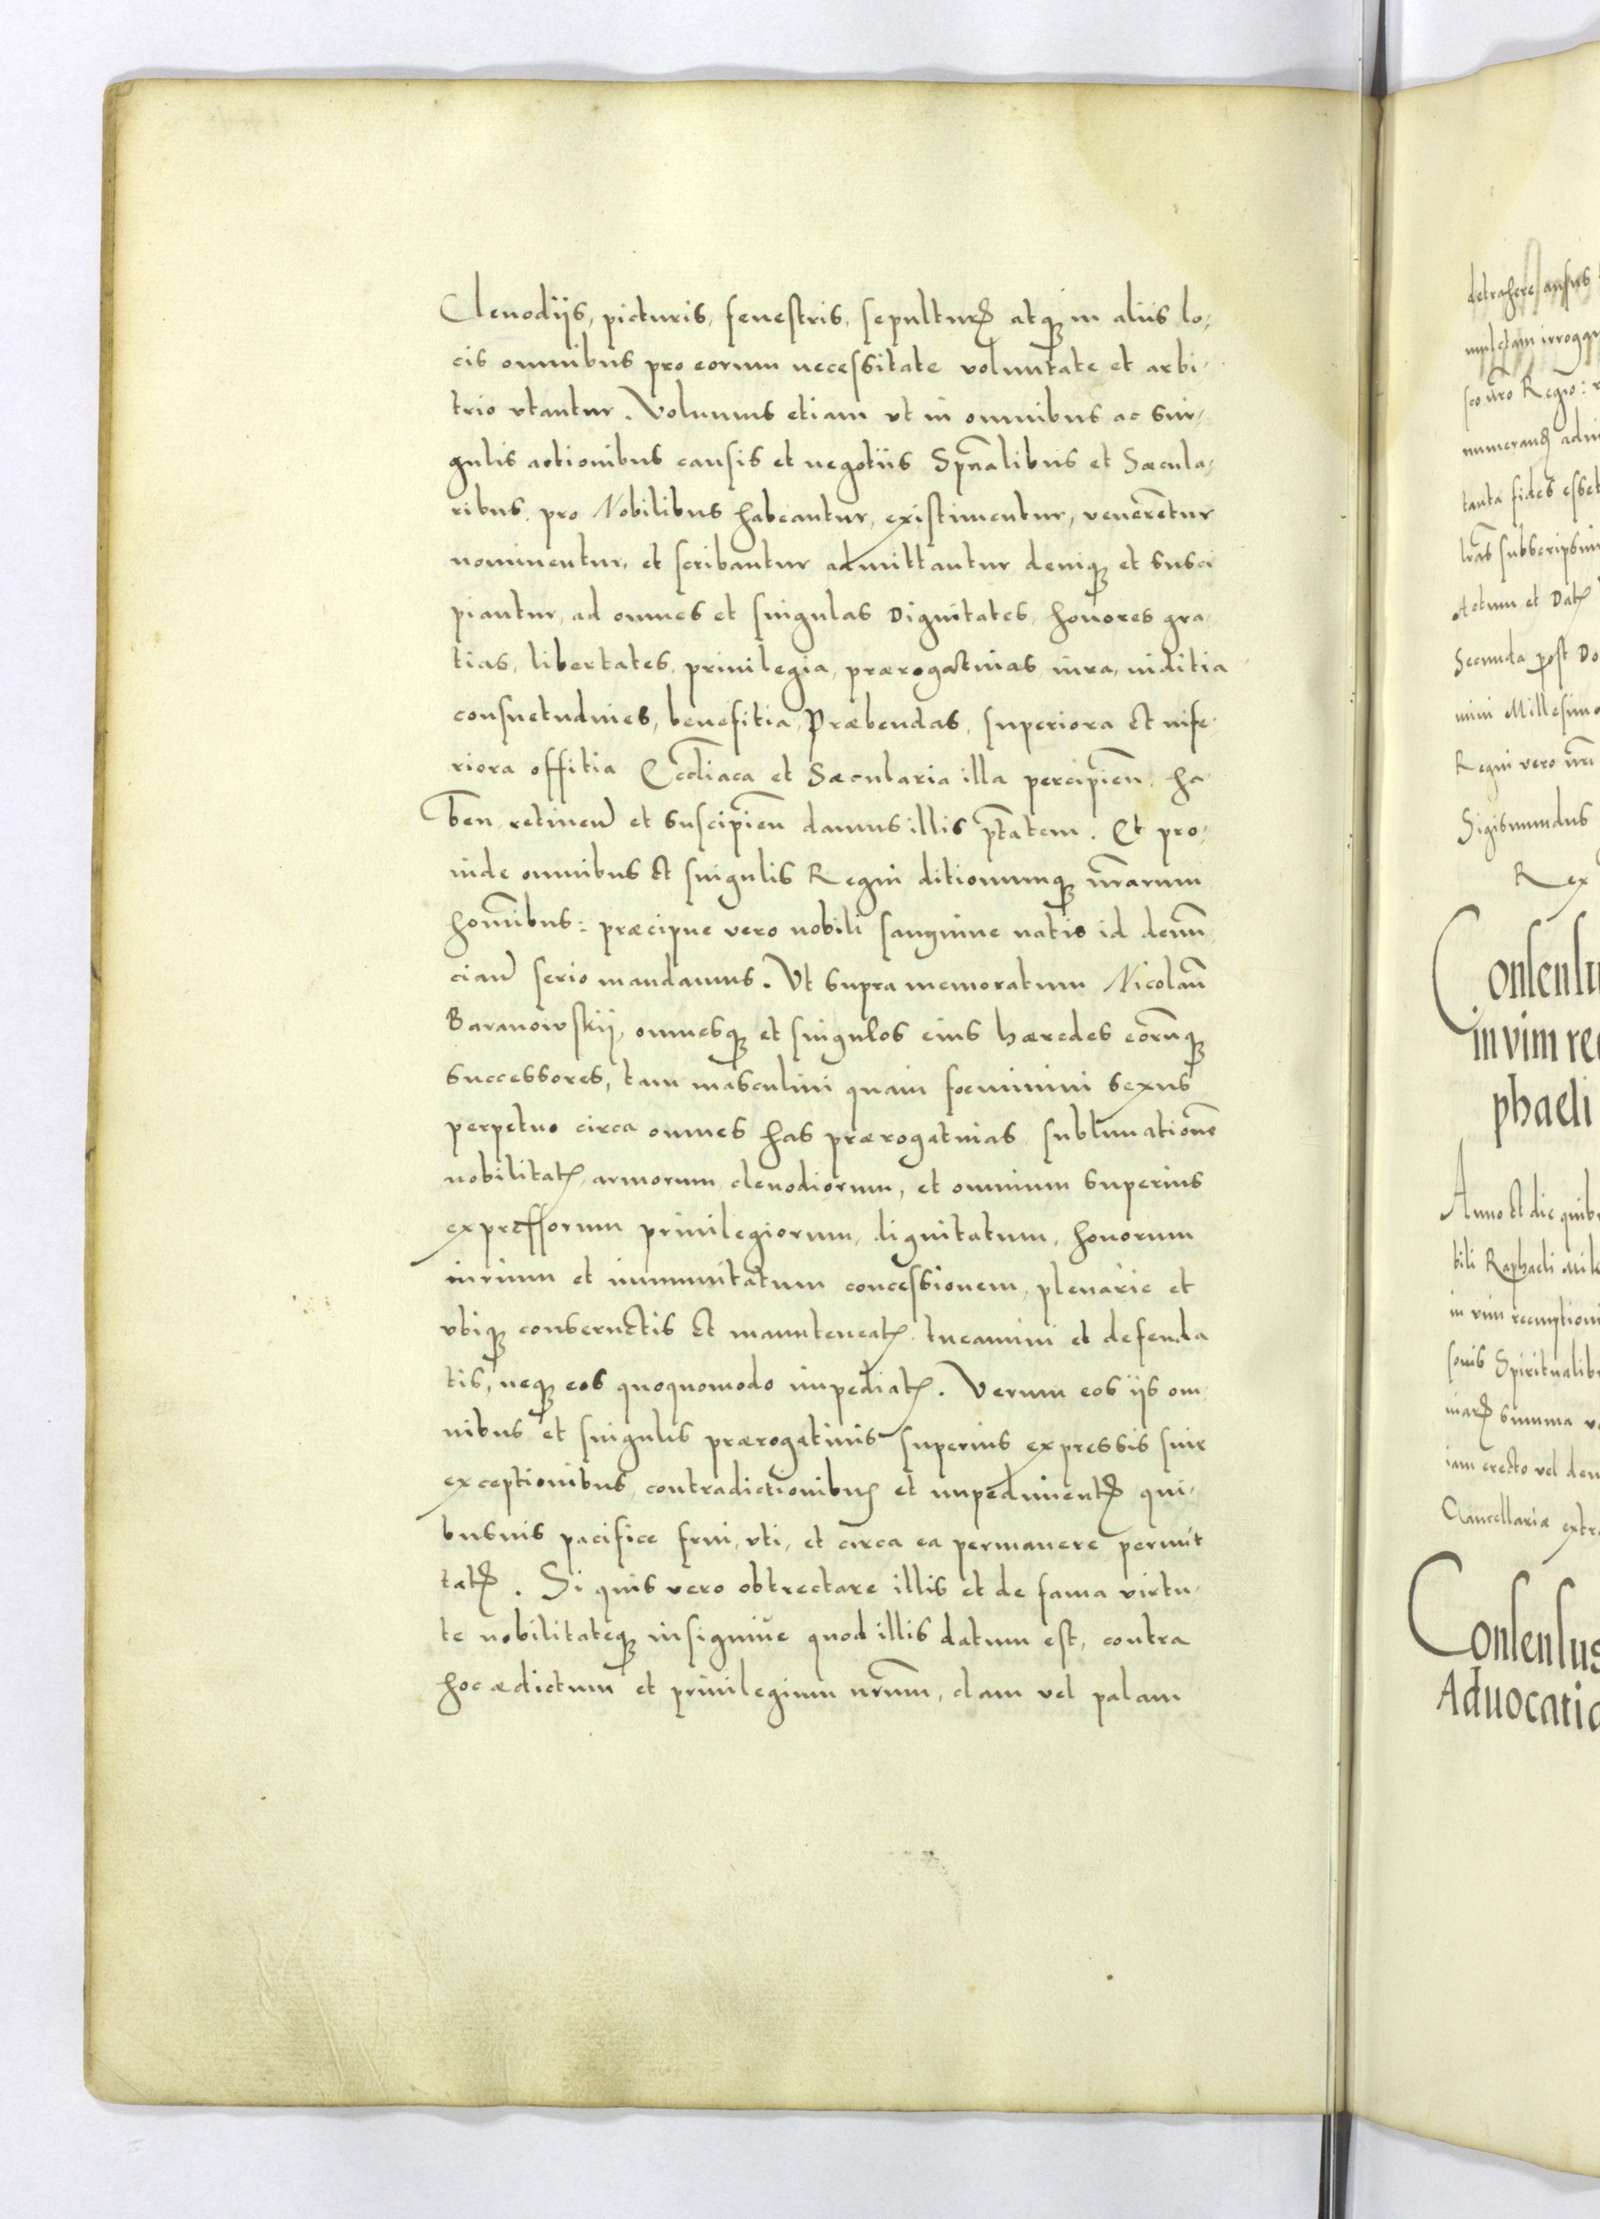 Clenodijs, picturis, fenestris, sepulturꝭ atqꝫ in aliis lo-
cis omnibus pro eorum necessitate voluntate et arbi-
trio vtantur. Volumus etiam vt in omnibus ac sin-
gulis actionibus causis et negotiis Spũalibus et Sæcula-
ribus, pro Nobilibus habeantur, existimentur, venerẽtur
nominentur, et scribantur admittantur deniqꝫ et susci
piantur, ad omnes et singulas Dignitates, honores gra-
tias, libertates, priuilegia, prærogatiuas, iura, inditia
consuetudines, benefitia, Præbendas, superiora et infe-
riora offitia Eccĺiaca et Sæcularia illa percipień, ha-
beń, retineń et suscipień damus illis ptãtem. Et pro-
inde omnibus et singulis Regni ditionumqꝫ nr̃arum
homĩbus: præcipue vero nobili sanguine natis id denũ
ciań serio mandamus. Vt supra memoratum Nicolaũ
Baranowskij, omnesqꝫ et singulos eius hæredes eorũqꝫ
successores, tam masculini quam foeminini sexus
perpetuo circa omnes has prærogatiuas, sublimationẽ
nobilitatꝭ, armorum, clenodiorum, et omnium superius
expressorum priuilegiorum, dignitatum, honorum
iurium et immunitatum concessionem, plenarie et
vbiqꝫ conseruetis et manuteneatꝭ, tueamini et defenda
tis, neqꝫ eos quoquomodo impediatꝭ. Verum eos ijs om-
nibus et singulis prærogatiuis superius expressis sine
exceptionibus, contradictionibus et impedimentꝭ qui-
busuis pacifice frui, vti, et circa ea permanere permit
tatꝭ. Si quis vero obtrectare illis et de fama virtu-
te nobilitateqꝫ insigniue quod illis datum est, contra
hoc ædictum et priuilegium nr̃um, clam vel palam
detrahere ausus
mulctam irrogam
sco nr̃o Regio:
numerandꝭ
tanta fides esset
lr̃as subscripsim
Actum et Datꝭ
Secunda post Do
mini Millesimo
Regni vero nr̃i
Sigismundus
Rex
Consensu
in vim re
phaeli
Anno et die quib
bili Raphaeli
in vim reemptioni
sonis Spiritualib
marꝭ summa
iam erecto vel
Cancellariæ extr
Consensus
Aduocatia